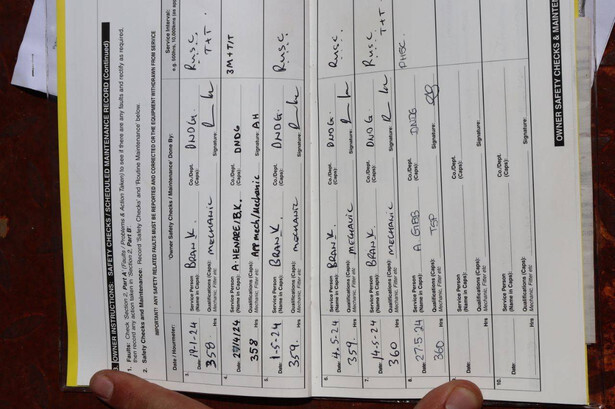 OWNER INSTRUCTIONS: SAFETY CHECKS / SCHEDULED MAINTENANCE RECORD (Continued)
1. Faults: Check 'Section 2, Part A' (Faults / Problems & Action Taken) to see if there are any faults and rectify as required,
then record any action taken in 'Section 2, Part B'.
2. Safety Checks and Maintenance: Record 'Safety Checks' and 'Routine Maintenance' below.
IMPORTANT: ANY SAFETY RELATED FAULTS MUST BE REPORTED AND CORRECTED OR THE EQUIPMENT WITHDRAWN FROM SERVICE
Date / Hourmeter: 'Owner Safety Checks / Maintenance' Done By: Service Interval:
3. Date: 19-1-24 Service Person (Name in Caps): BRAN K. Co./Dept. (Caps): DNDG.
358 Hrs Qualifications (Caps) Mechanic, Fitter etc MECHANIC Signature: T+T.
4. Date: 29/4/24 Service Person (Name in Caps): A. HENARE/B.K. Co./Dept. (Caps): DNDG 3M+T/T
358 Hrs Qualifications (Caps) Mechanic, Fitter etc App mech/Mechanic Signature: AH
5. Date: 1-5-24 Service Person (Name in Caps): BRAN K. Co./Dept. (Caps): DNDG.
359. Hrs Qualifications (Caps) Mechanic, Fitter etc MECHANIC Signature:
6. Date: 4-5-24 Service Person (Name in Caps): BRAN K. Co./Dept. (Caps): DNDG.
359. Hrs Qualifications (Caps) Mechanic, Fitter etc MECHANIC Signature:
7. Date: 14-5-24 Service Person (Name in Caps): BRAN K. Co./Dept. (Caps): DNDG.
360 Hrs Qualifications (Caps) Mechanic, Fitter etc MECHANIC Signature: T+T
8. Date: 27.5.24 Service Person (Name in Caps): Co./Dept. (Caps): DNDG
360 Hrs Qualifications (Caps) Mechanic, Fitter etc Signature:
9. Date: Service Person (Name in Caps): Co./Dept. (Caps):
Hrs Qualifications (Caps) Mechanic, Fitter etc Signature:
10. Date: Service Person (Name in Caps): Co./Dept. (Caps):
Hrs Qualifications (Caps) Mechanic, Fitter etc Signature:
OWNER SAFETY CHECKS &